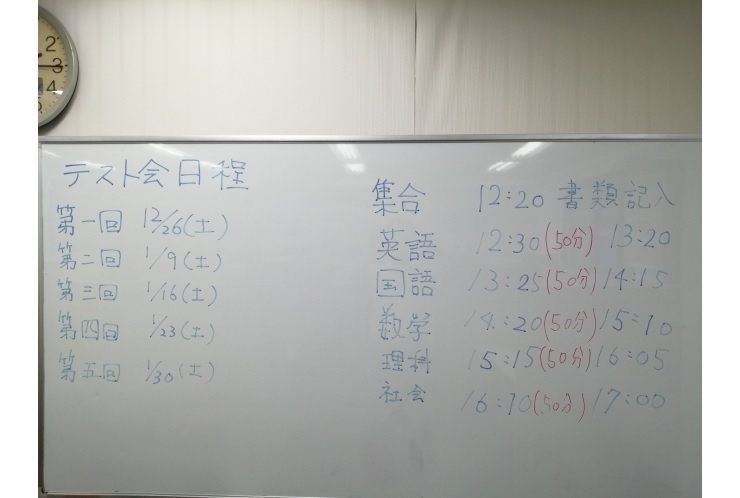 2
3
4
テスト会日程
第一回 12/26(土)
第二回 1/9(土)
第三回 1/16(土)
第四回 1/23(土)
第五回 1/30(土)
集合 12:20 書類記入
英語 12:30(50分) 13:20
国語 13:25(50分) 14:15
数学 14:20(50分) 15:10
理科 15:15(50分) 16:05
社会 16:10(50分) 17:00